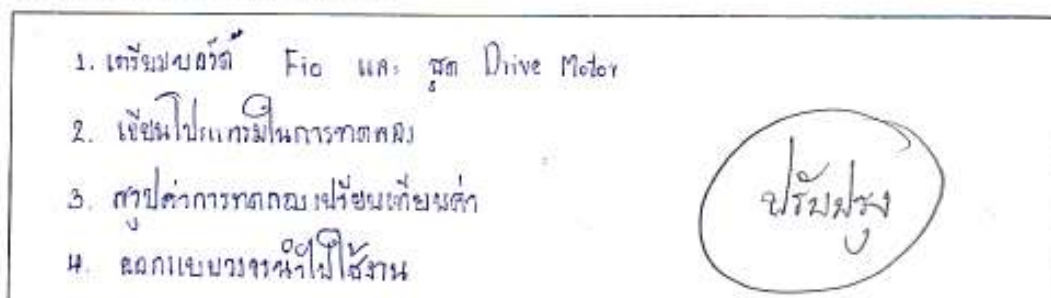 1. เตรียมบอร์ด Fio และ ชุด Drive Motor
2. เขียนโปรแกรมในการทดลอง
3. สรุปค่าการทดลองเปรียบเทียบค่า
4. ออกแบบวงจรนำไปใช้งาน
ปรับปรุง